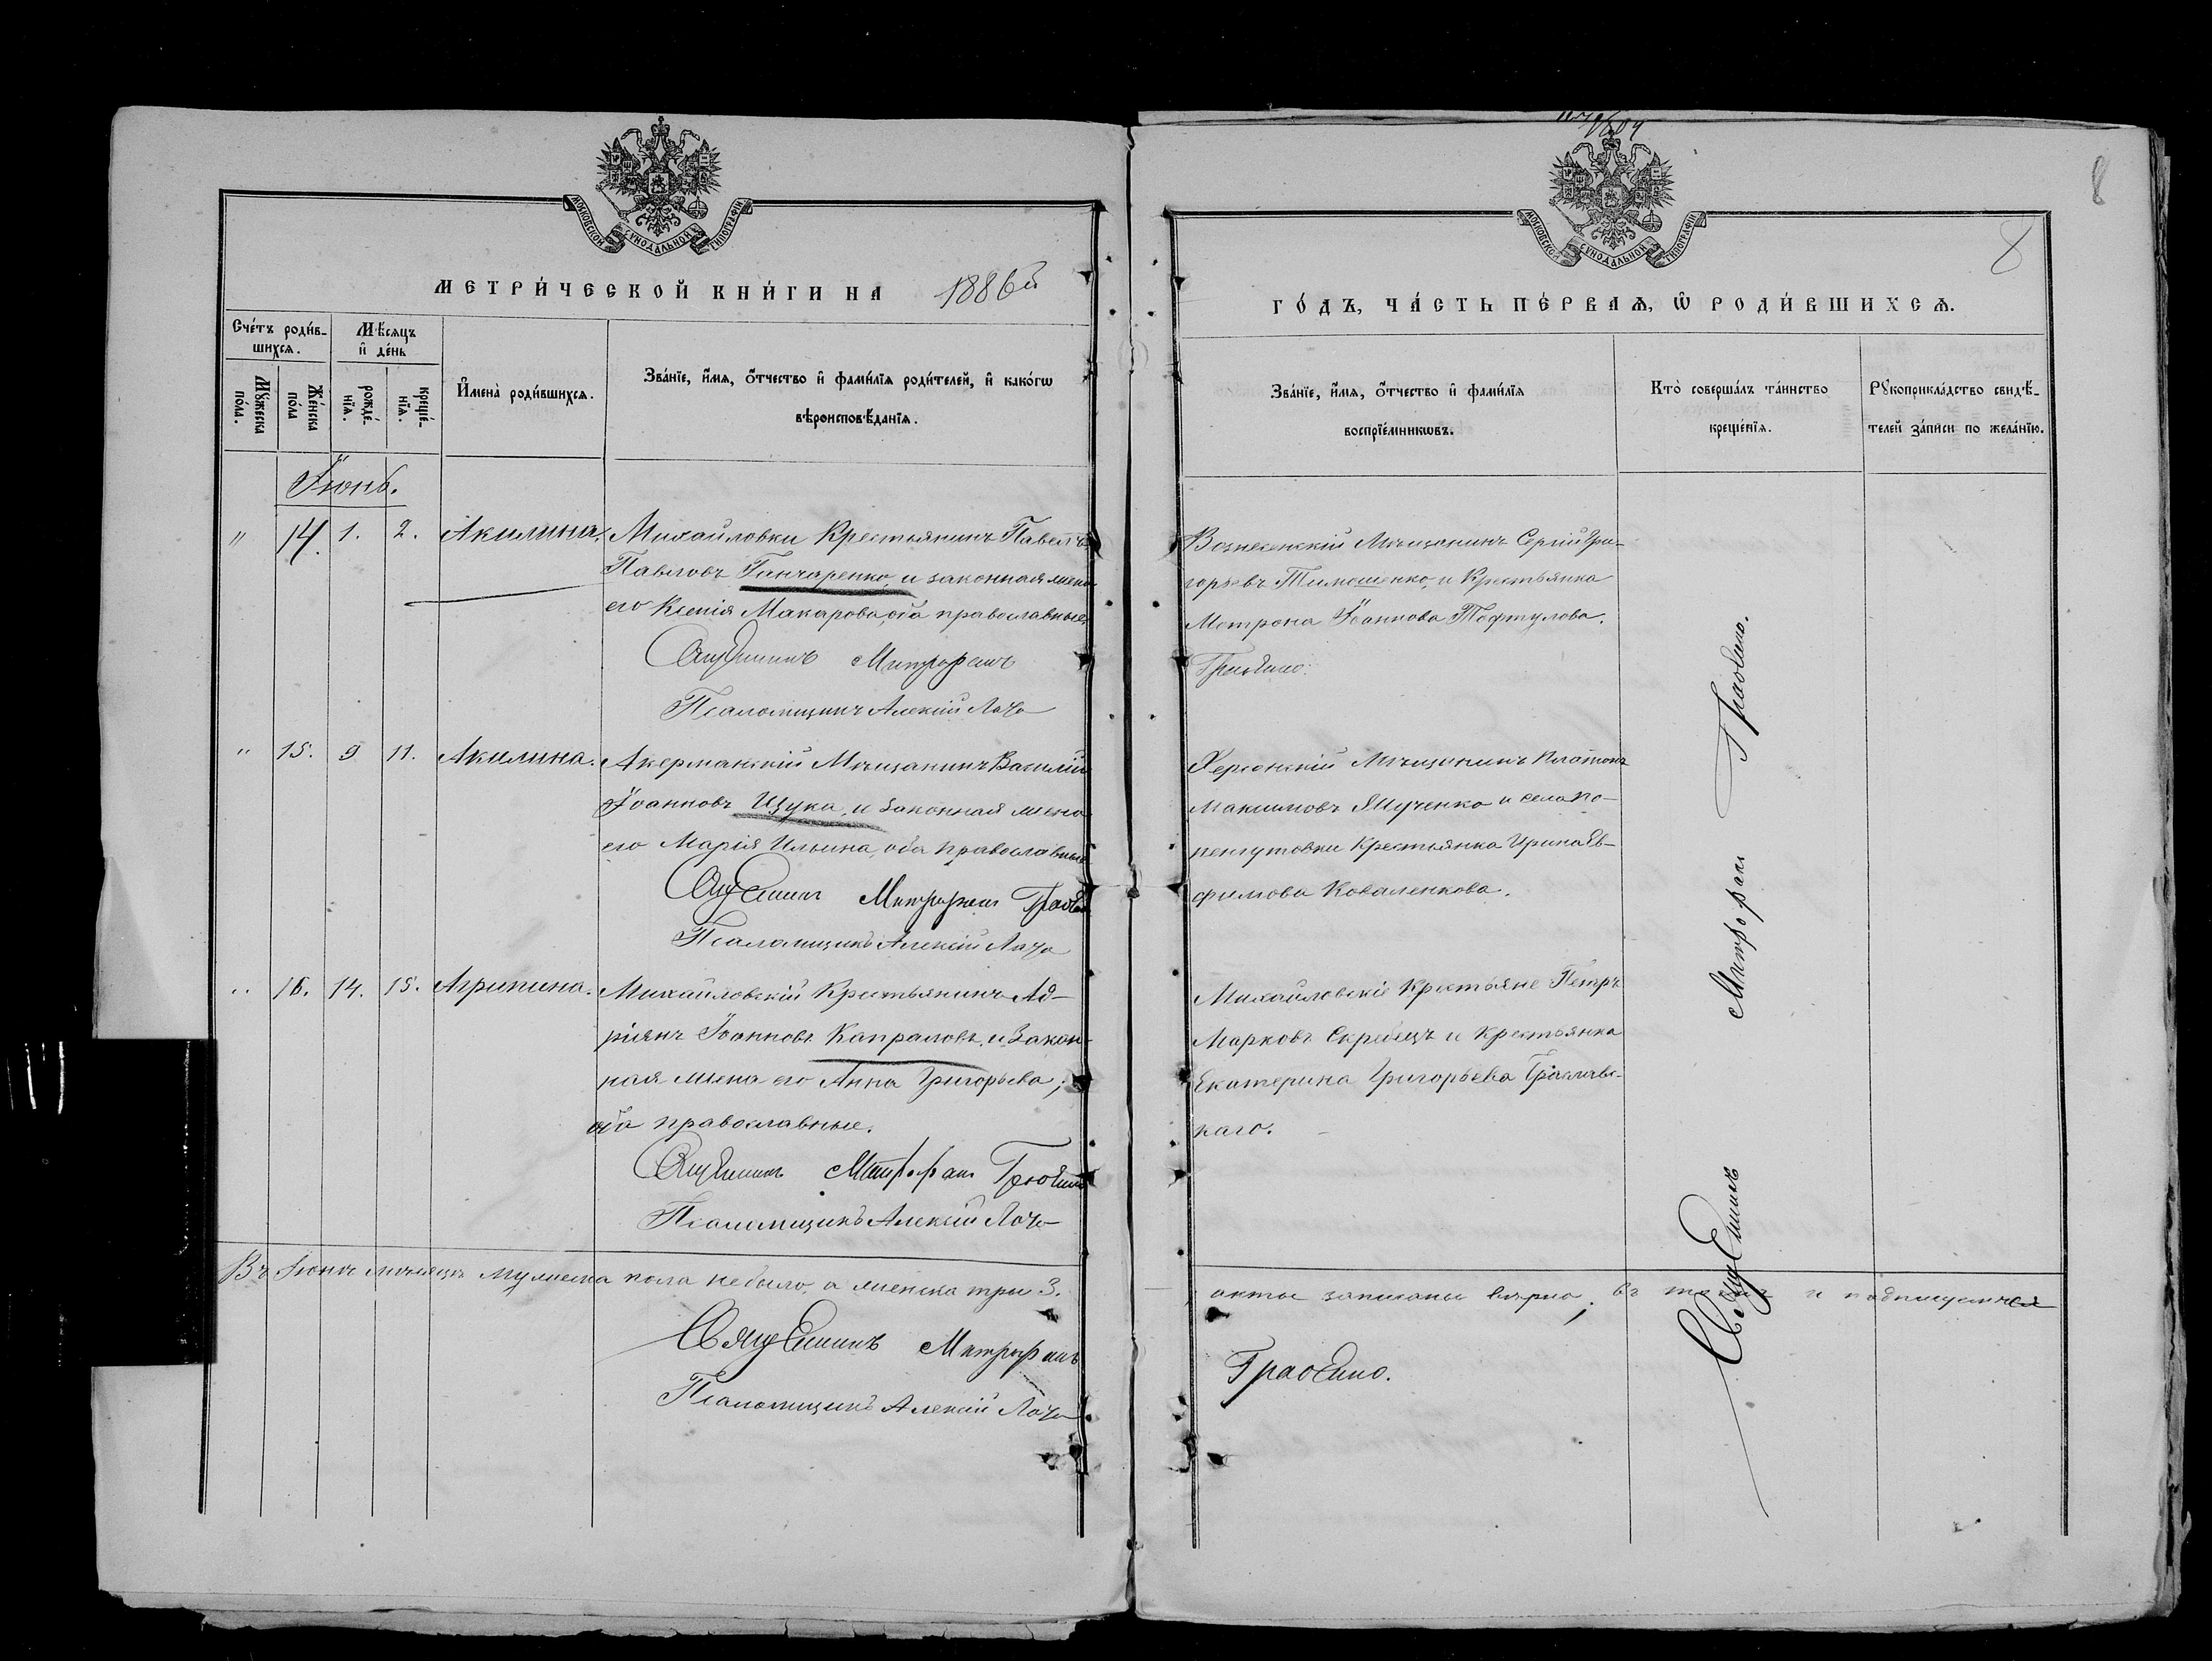 МОСКОВСКОЙ СѴНОДАЛЬНОЙ ТИПОГРАФІИ
МЕТРИ́ЧЕСКОЙ КНИ́ГИ НА 1886й
Сче́тъ роди́в-
шихсѧ.
Мѣ́сѧцъ
и҆ де́нь
Мꙋ́жеска
по́ла.
Же́нска
по́ла
рожде́-
нїѧ.
креще́-
нїѧ.
И҆мена̀ роди́вшихсѧ.
Зва́нїе, и҆́мѧ, ѻ҆́тчество и҆ фами́лїѧ роди́телей, и҆ како́гѡ
вѣроисповѣ́данїѧ.
Іюнь.
" 14. 1. 2. Акилина. Михайловки Крестьянинъ Павелъ
Павловъ Ганчаренко, и законная жена
его Ксенія Макарова, оба православные.
Священникъ Митрофанъ
Псаломщикъ Алексій
" 15. 9 11. Акилина. Акерманскій Мѣщанинъ Василій
Іоанновъ Щука, и законная жена
его Марія Ильина, оба православные
Священникъ Митрофанъ
Псаломщикъ Алексій
" 16. 14. 15. Агрипина. Михайловскій Крестьянинъ Ад-
ріянъ Іоанновъ Капраловъ, и закон-
ная жена его Анна Григорьева;
оба православные.
Священникъ Митрофанъ
Псаломщикъ Алексій
Въ Іюнѣ мѣсяцѣ мужеска пола небыло, а женска три 3.
Священникъ Митрофанъ
Псаломщикъ Алексій
8
8
МОСКОВСКОЙ СѴНОДАЛЬНОЙ ТИПОГРАФІИ
ГО́ДЪ, ЧА́СТЬ ПЕ́РВАѦ, Ѽ РОДИ́ВШИХСѦ.
Зва́нїе, и҆́мѧ, ѻ҆́тчество и҆ фами́лїѧ
воспрїе́мникѡвъ.
Кто̀ соверша́лъ та́инство
креще́нїѧ.
Рꙋкоприкла́дство свидѣ́-
телей за́писи по жела́нїю.
Вознесенскій Мѣщанинъ Сергій Гри-
горьевъ Тимошенко, и Крестьянка
Матрона Іоаннова
Херсонскій Мѣщанинъ Платонъ
Максимовъ и села
Крестьянка Ирина Ев-
фимова Коваленкова.
Михайловскіе Крестьяне Петръ
Марковъ Скребецъ и Крестьянка
Екатерина Григорьева
каго.
Священникъ Митрофанъ
акты записаны вѣрно; въ томъ и подписуемся